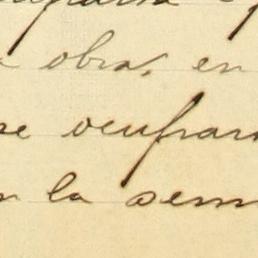 obra, en
se ocupara
la sem